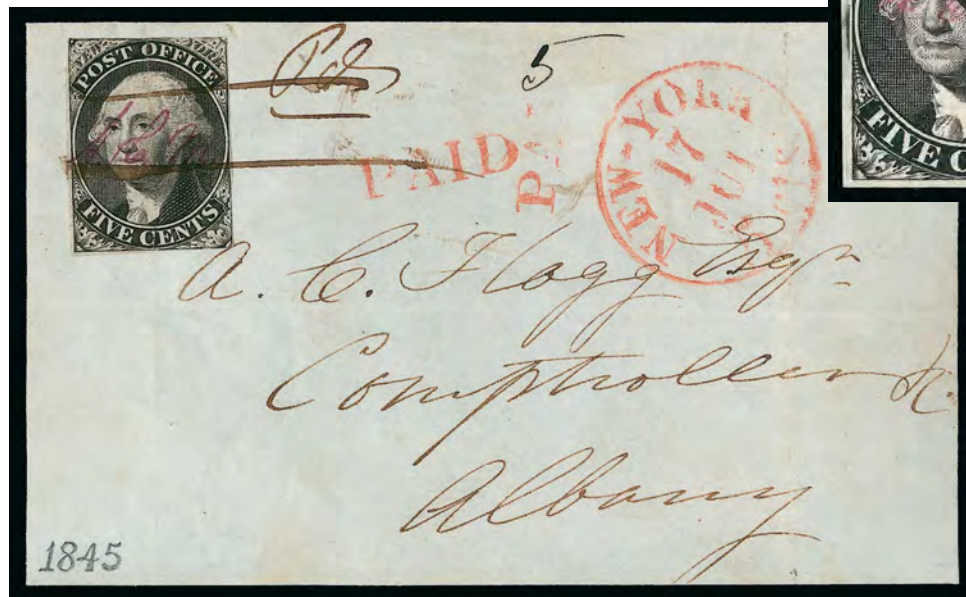 POST OFFICE
FIVE CENTS
Pd
5
PAID
NEW-YORK
17
JUL
A. C. Flagg Esqr
Comptroller &c.
Albany
1845
FIVE C